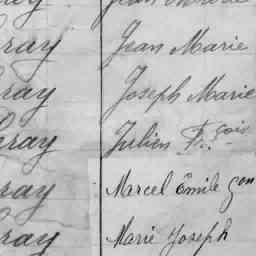 ray Jean Marie
ray Joseph Marie
ray Julien Fçois
ray Marcel Emile Gon
ray Marie Joseph